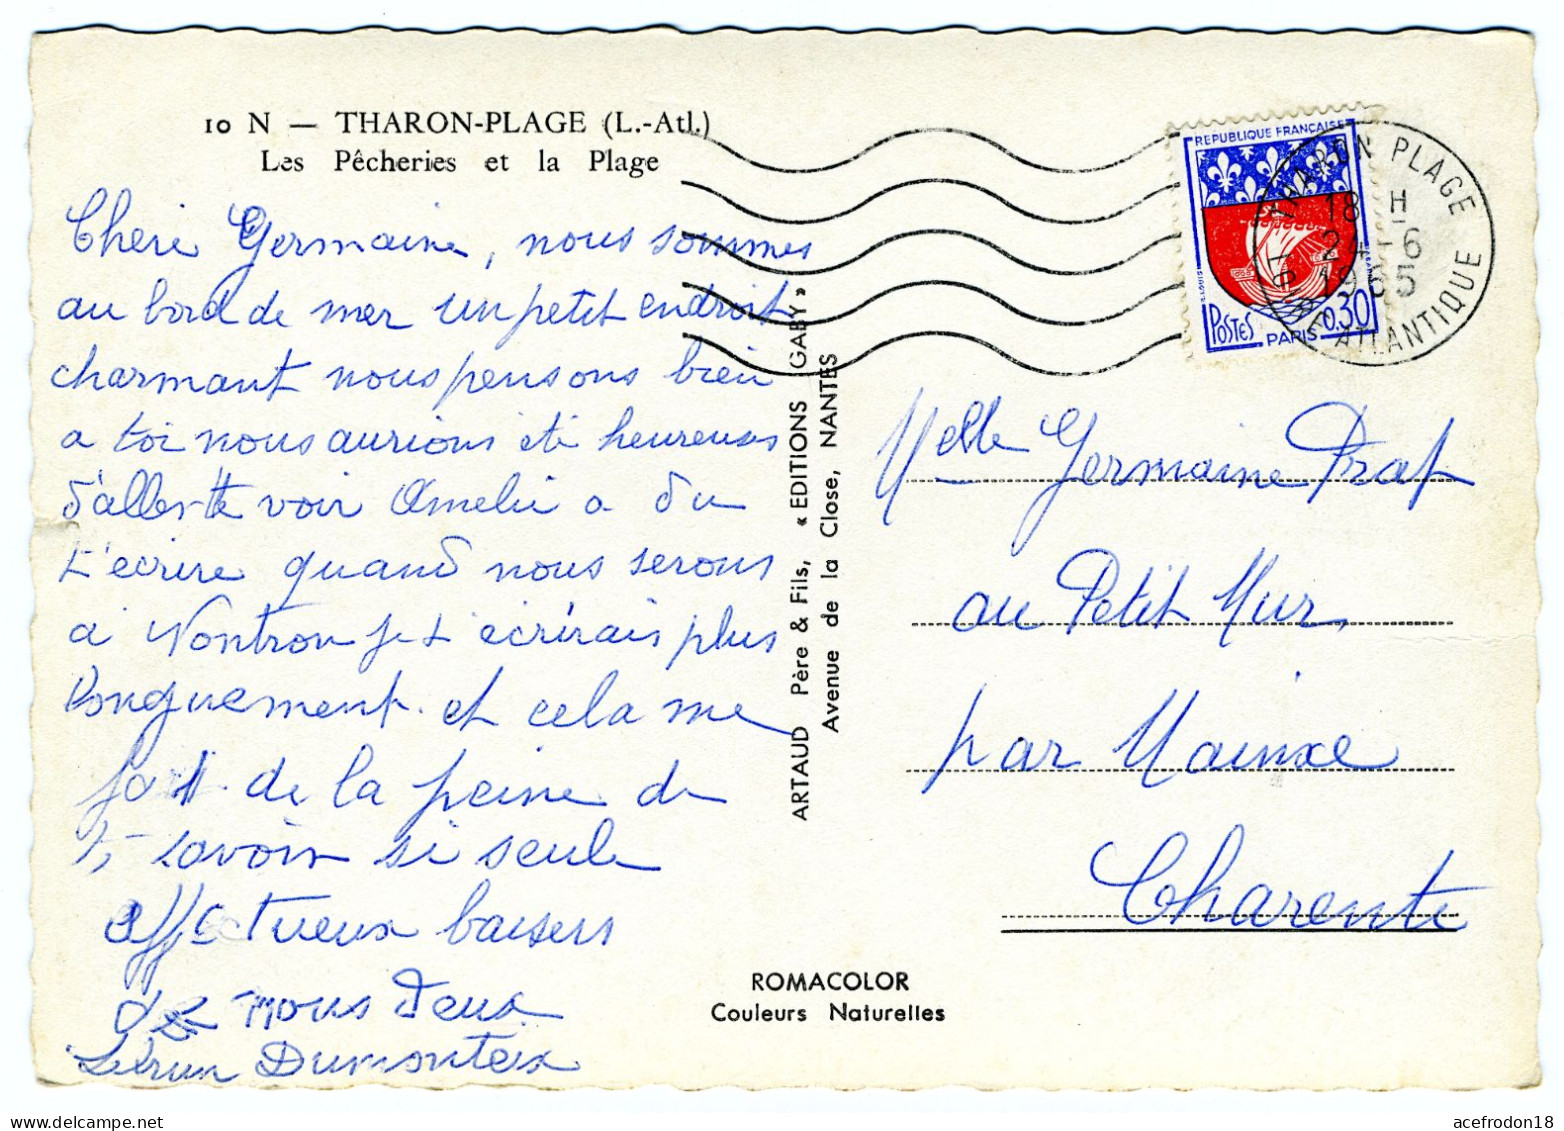 10 N — THARON-PLAGE (L.-Atl.)
Les Pêcheries et la Plage
Cheri Germaine, nous sommes
au bord de mer un petit endroit
charmant nous pensons bien
a toi nous aurions été heureuses
d'aller te voir Amelie a du
t'ecrire quand nous serons
a Nontron je t'écrirais plus
longuement. et cela me
fait de la peine de
te savoir si seule
affectueux baisers
de nous deux
Dumonteix
ARTAUD Père & Fils, « EDITIONS GABY »
Avenue de la Close, NANTES
REPUBLIQUE FRANÇAISE
POSTES 0,30
PARIS
THARON PLAGE
18 H
24 - 6
1965
LOIRE ATLANTIQUE
Melle Germaine Prat
au Petit Mur,
par Mainxe
Charente
ROMACOLOR
Couleurs Naturelles
acefrodon18